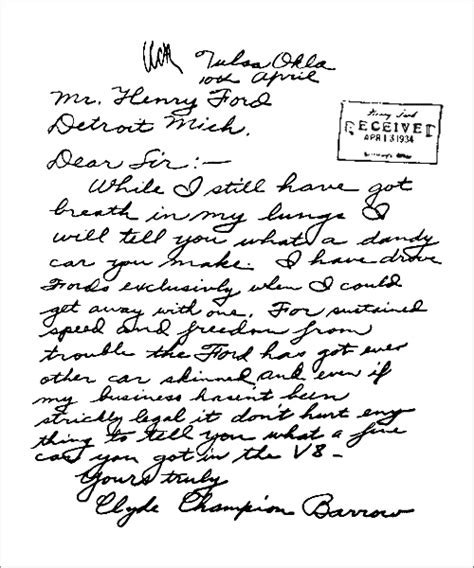 Tulsa Okla
10th April
Mr. Henry Ford
Detroit Mich.
Henry Ford
RECEIVED
APR 13 1934
Office
Dear Sir:—
While I still have got
breath in my lungs I
will tell you what a dandy
car you make. I have drove
Fords exclusively when I could
get away with one. For sustained
speed and freedom from
trouble the Ford has got ever
other car skinned and even if
my business hasn't been
strickly legal it don't hurt eny
thing to tell you what a fine
car you got in the V8 —
Yours truly
Clyde Champion Barrow